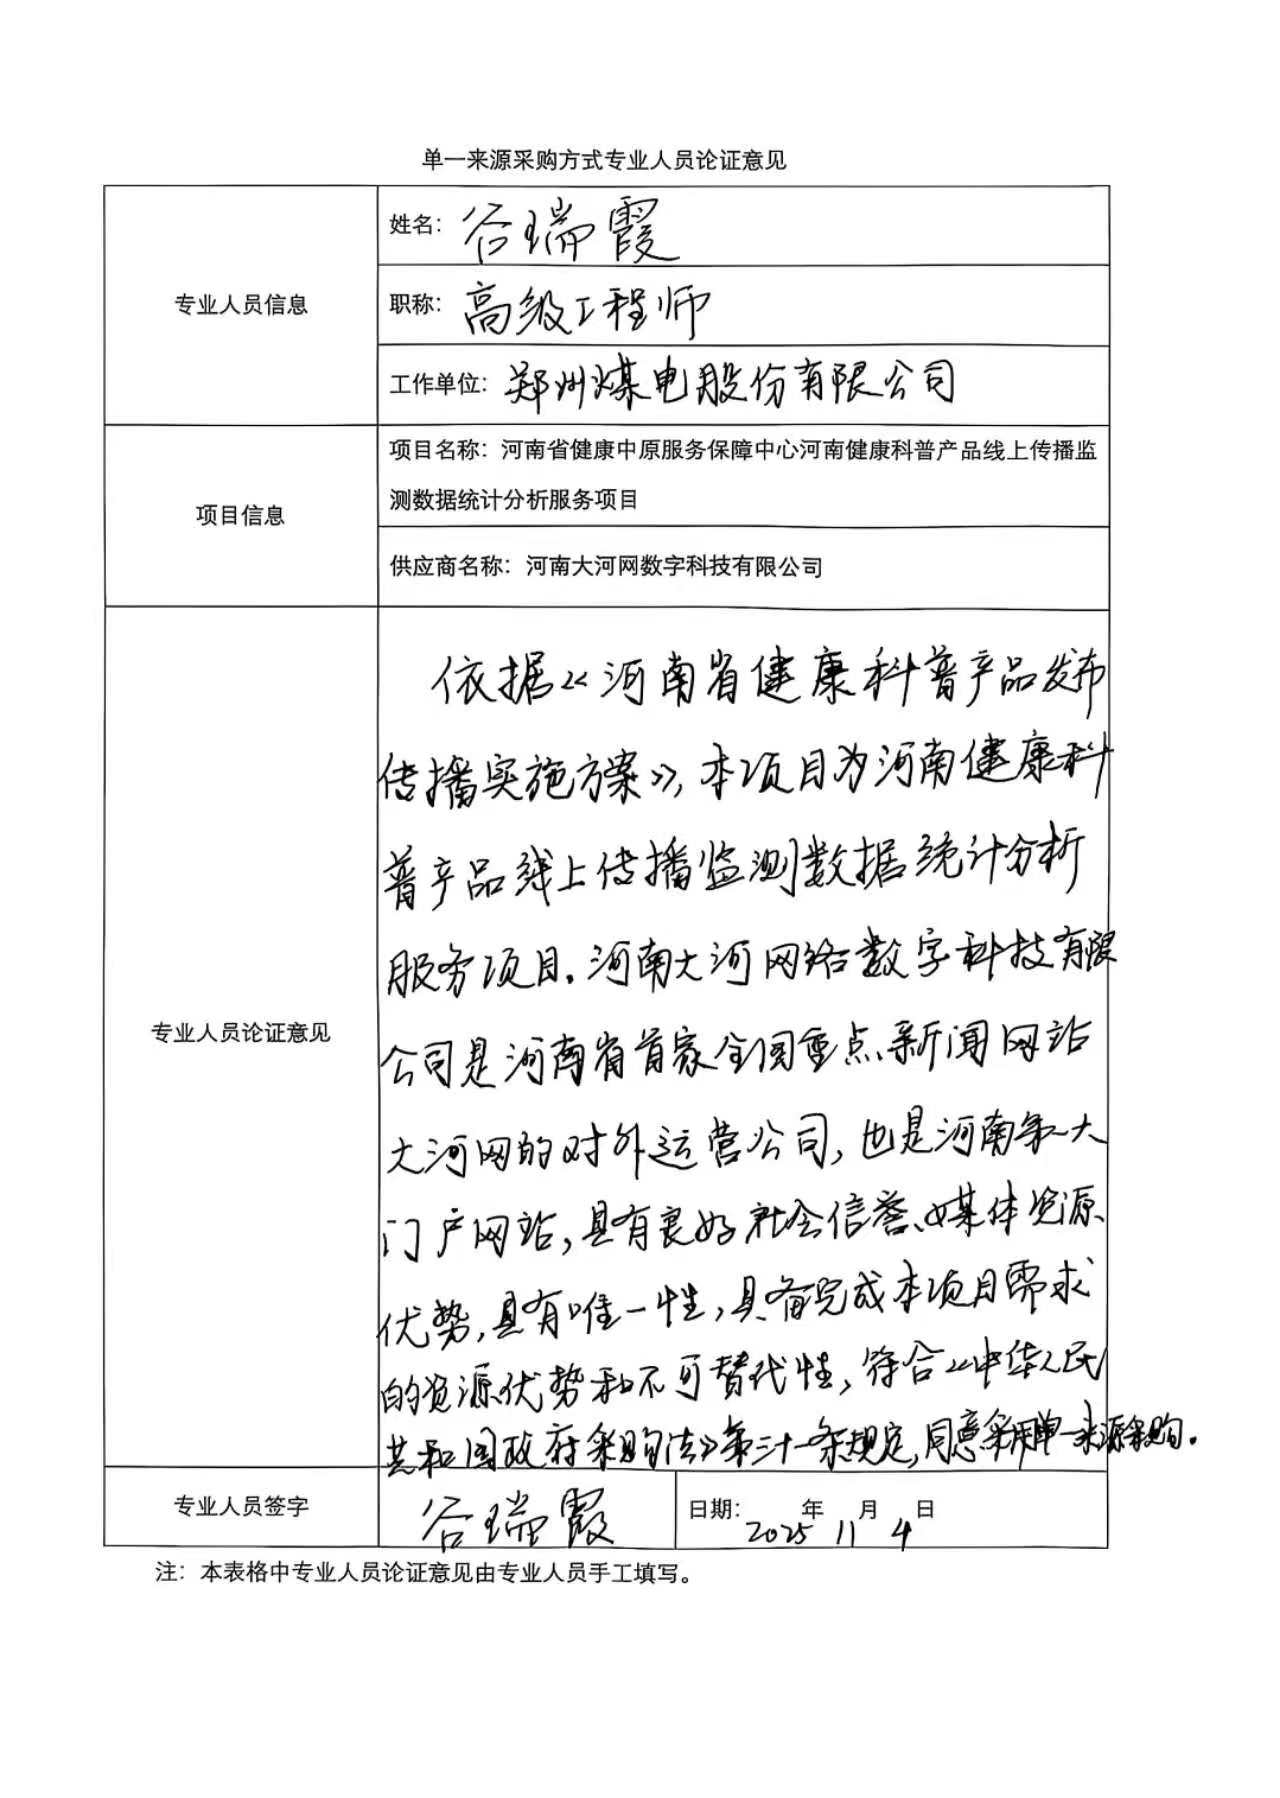 单一来源采购方式专业人员论证意见
专业人员信息
姓名：谷瑞霞
职称：高级工程师
工作单位：郑州煤电股份有限公司
项目信息
项目名称：河南省健康中原服务保障中心河南健康科普产品线上传播监
测数据统计分析服务项目
供应商名称：河南大河网数字科技有限公司
专业人员论证意见
依据《河南省健康科普产品发布
传播实施方案》，本项目为河南健康科
普产品线上传播监测数据统计分析
服务项目。河南大河网络数字科技有限
公司是河南省首家全国重点新闻网站
大河网的对外运营公司，也是河南第一大
门户网站，具有良好社会信誉、媒体资源
优势，具有唯一性，具备完成本项目需求
的资源优势和不可替代性，符合《中华人民
共和国政府采购法》第三十一条规定，同意采用单一来源采购。
专业人员签字
谷瑞霞
日期：2025年11月4日
注：本表格中专业人员论证意见由专业人员手工填写。